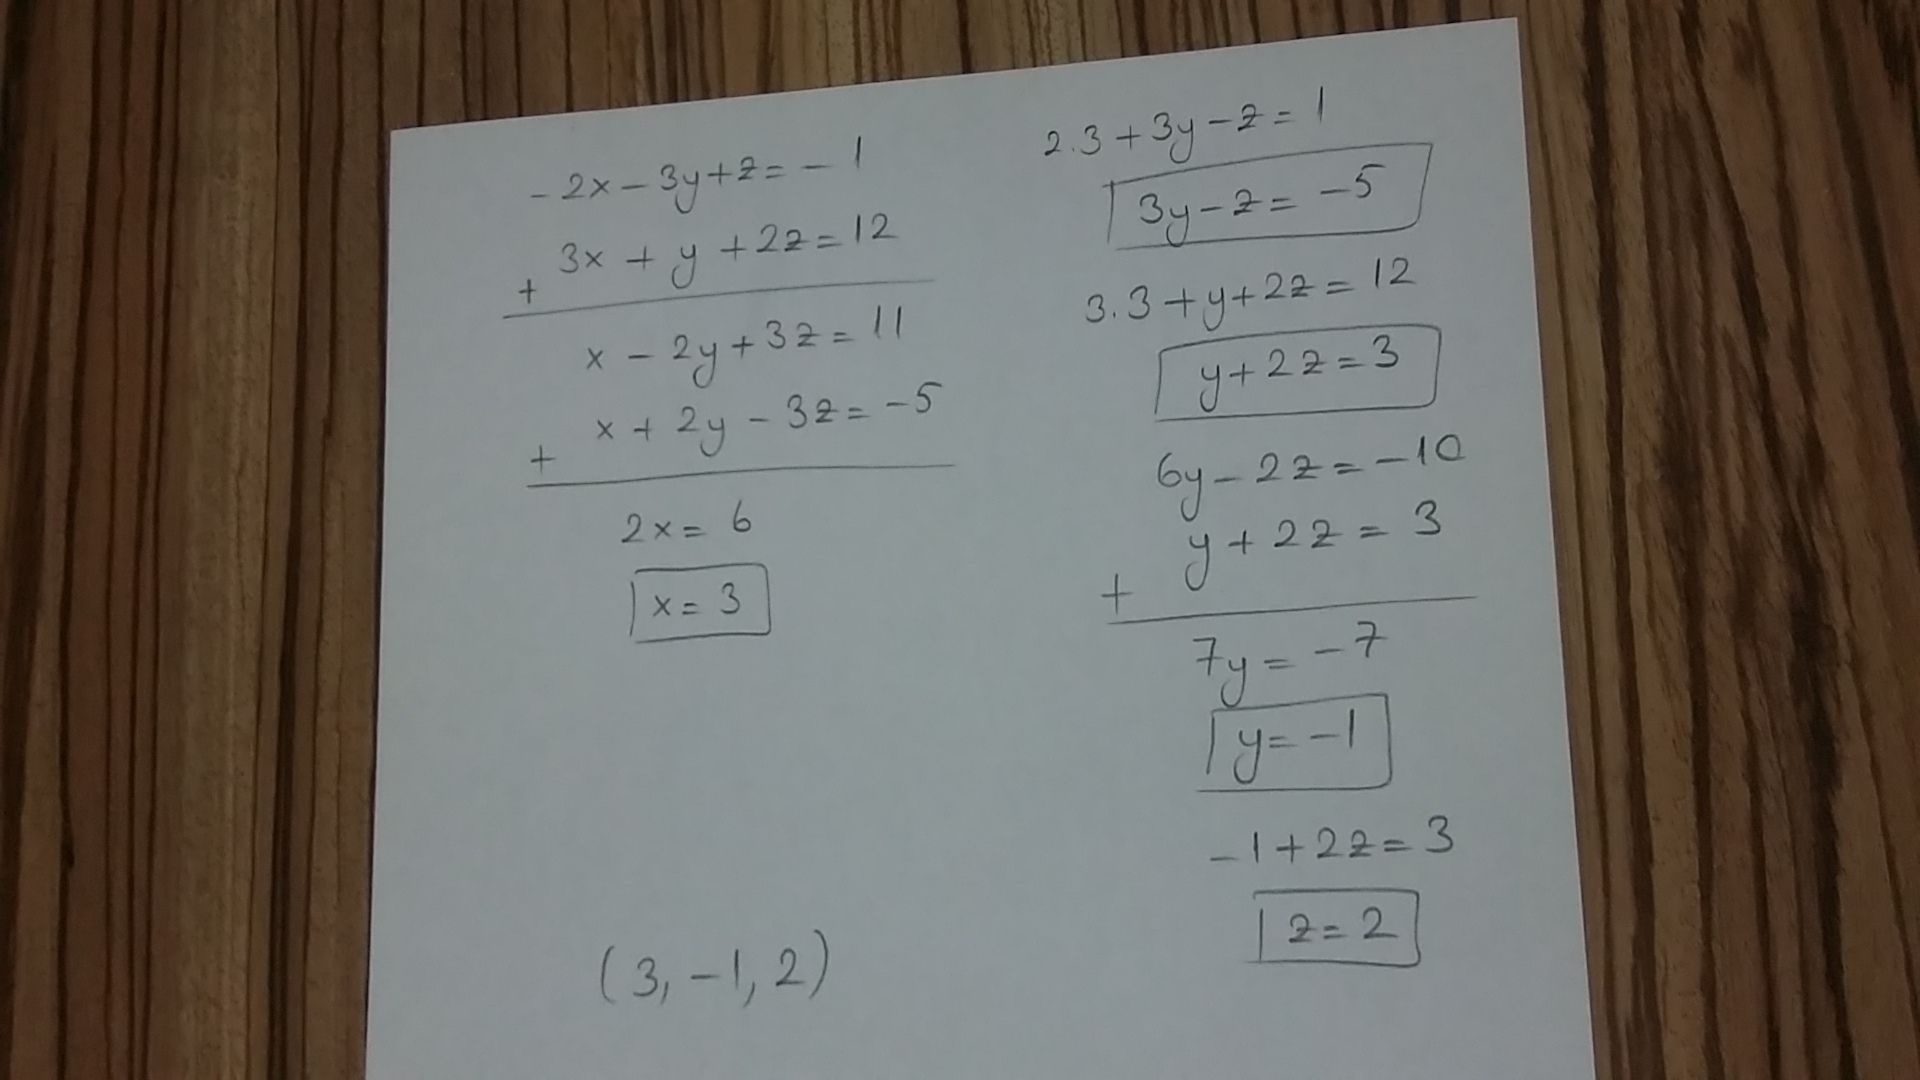 -2x-3y+z=-1
3x+y+2z=12
+
x-2y+3z=11
x+2y-3z=-5
+
2x=6
x=3
(3,-1,2)
2.3+3y-z=1
3y-z=-5
3.3+y+2z=12
y+2z=3
6y-2z=-10
y+2z=3
+
7y=-7
y=-1
-1+2z=3
z=2